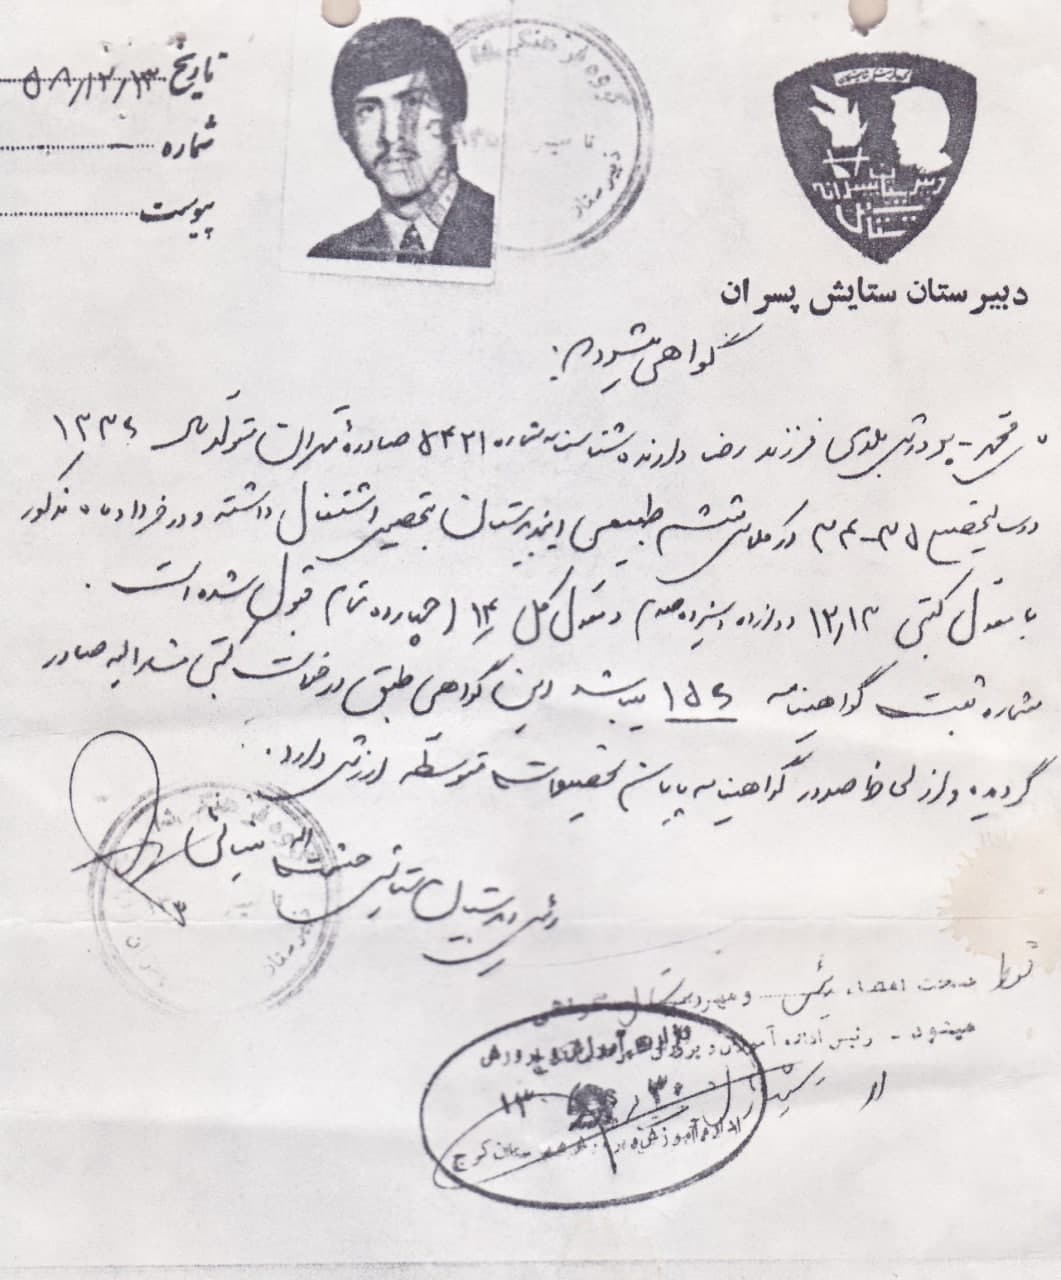 تاریخ ۵۸/۱۲/۱۳
شماره
پیوست
گروه فرهنگی
دبیرستان پسرانه
ستایش
دبیرستان ستایش پسران
گواهی میشود که:
فرزند رضا دارنده شناسنامه شماره ۵۴۲۱ صادره تهران متولد سال ۱۳۳۶
در سال تحصیلی ۳۵-۳۴ در کلاس ششم طبیعی این دبیرستان بتحصیل اشتغال داشته و در خرداد ماه مذکور
با معدل کتبی ۱۲/۱۳ دوازده و سیزده صدم و معدل کل ۱۴ (چهارده تمام) قبول شده است.
شماره ثبت گواهینامه ۱۵۶ میباشد این گواهی طبق درخواست کتبی مشارالیه صادر
گردیده و از لحاظ صدور گواهینامه پایان تحصیلات متوسطه ارزشی ندارد.
رئیس دبیرستان ستایش حشمت اله
صحت امضاء رئیس و مهر دبیرستان گواهی
میشود - رئیس اداره آموزش و پرورش
وزارت آموزش و پرورش
اداره آموزش و پرورش شهرستان کرج